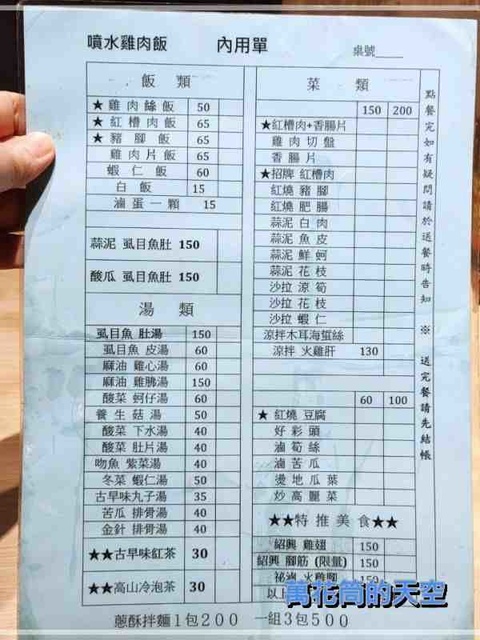 噴水雞肉飯 內用單
桌號____
飯 類
★ 雞肉絲飯 50
★ 紅槽肉飯 65
★ 豬腳飯 65
雞肉片飯 65
蝦仁飯 60
白飯 15
滷蛋一顆 15
蒜泥 虱目魚肚 150
酸瓜 虱目魚肚 150
湯 類
虱目魚 肚湯 150
虱目魚 皮湯 60
麻油 雞心湯 60
麻油 雞腸湯 150
酸菜 蚵仔湯 60
養生菇湯 50
酸菜 下水湯 40
酸菜 肚片湯 40
吻魚 紫菜湯 40
冬菜 蝦仁湯 50
古早味丸子湯 35
苦瓜 排骨湯 40
金針 排骨湯 40
★★古早味紅茶 30
★★高山冷泡茶 30
菜 類
150 200
★紅槽肉+香腸片
雞肉切盤
香腸片
★招牌 紅槽肉
紅燒 豬腳
紅燒 肥腸
蒜泥 白肉
蒜泥 魚皮
蒜泥 鮮蚵
蒜泥 花枝
沙拉 涼筍
沙拉 花枝
沙拉 蝦仁
涼拌木耳海蜇絲
涼拌 火雞肝 130
60 100
★ 紅燒 豆腐
好彩頭
滷筍絲
滷苦瓜
燙地瓜葉
炒高麗菜
★★特推美食★★
紹興 雞翅 150
紹興 腳筋 (限量) 150
祕滷 火雞腳 150
以上
點餐完如有疑問請於送餐時告知 ※ 送完餐請先結帳
蔥酥拌麵1包200 一組3包500
萬花筒的天空